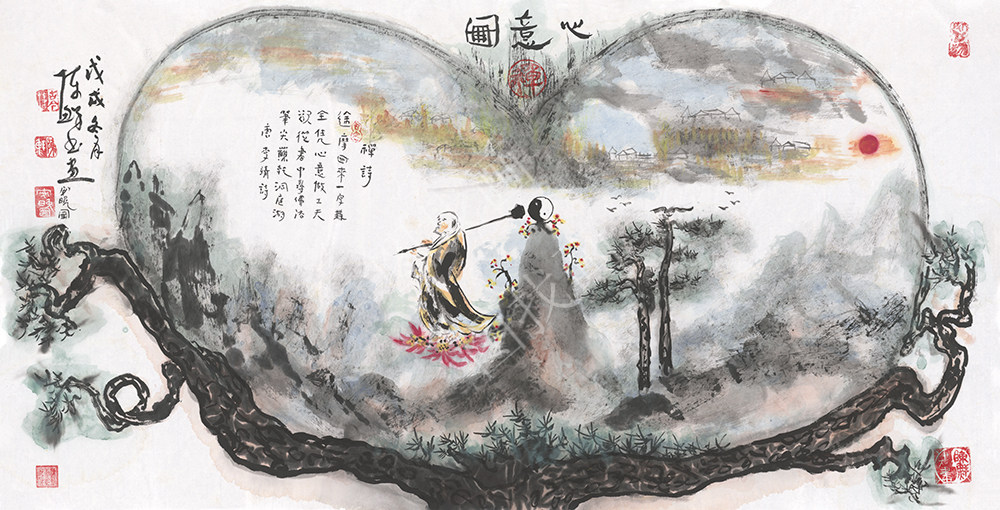 心意圖
禪詩
達摩西來一字無
全凭心意做工夫
欲從書中尋佛法
筆尖蘸乾洞庭湖
唐李靖詩
戊戌冬月